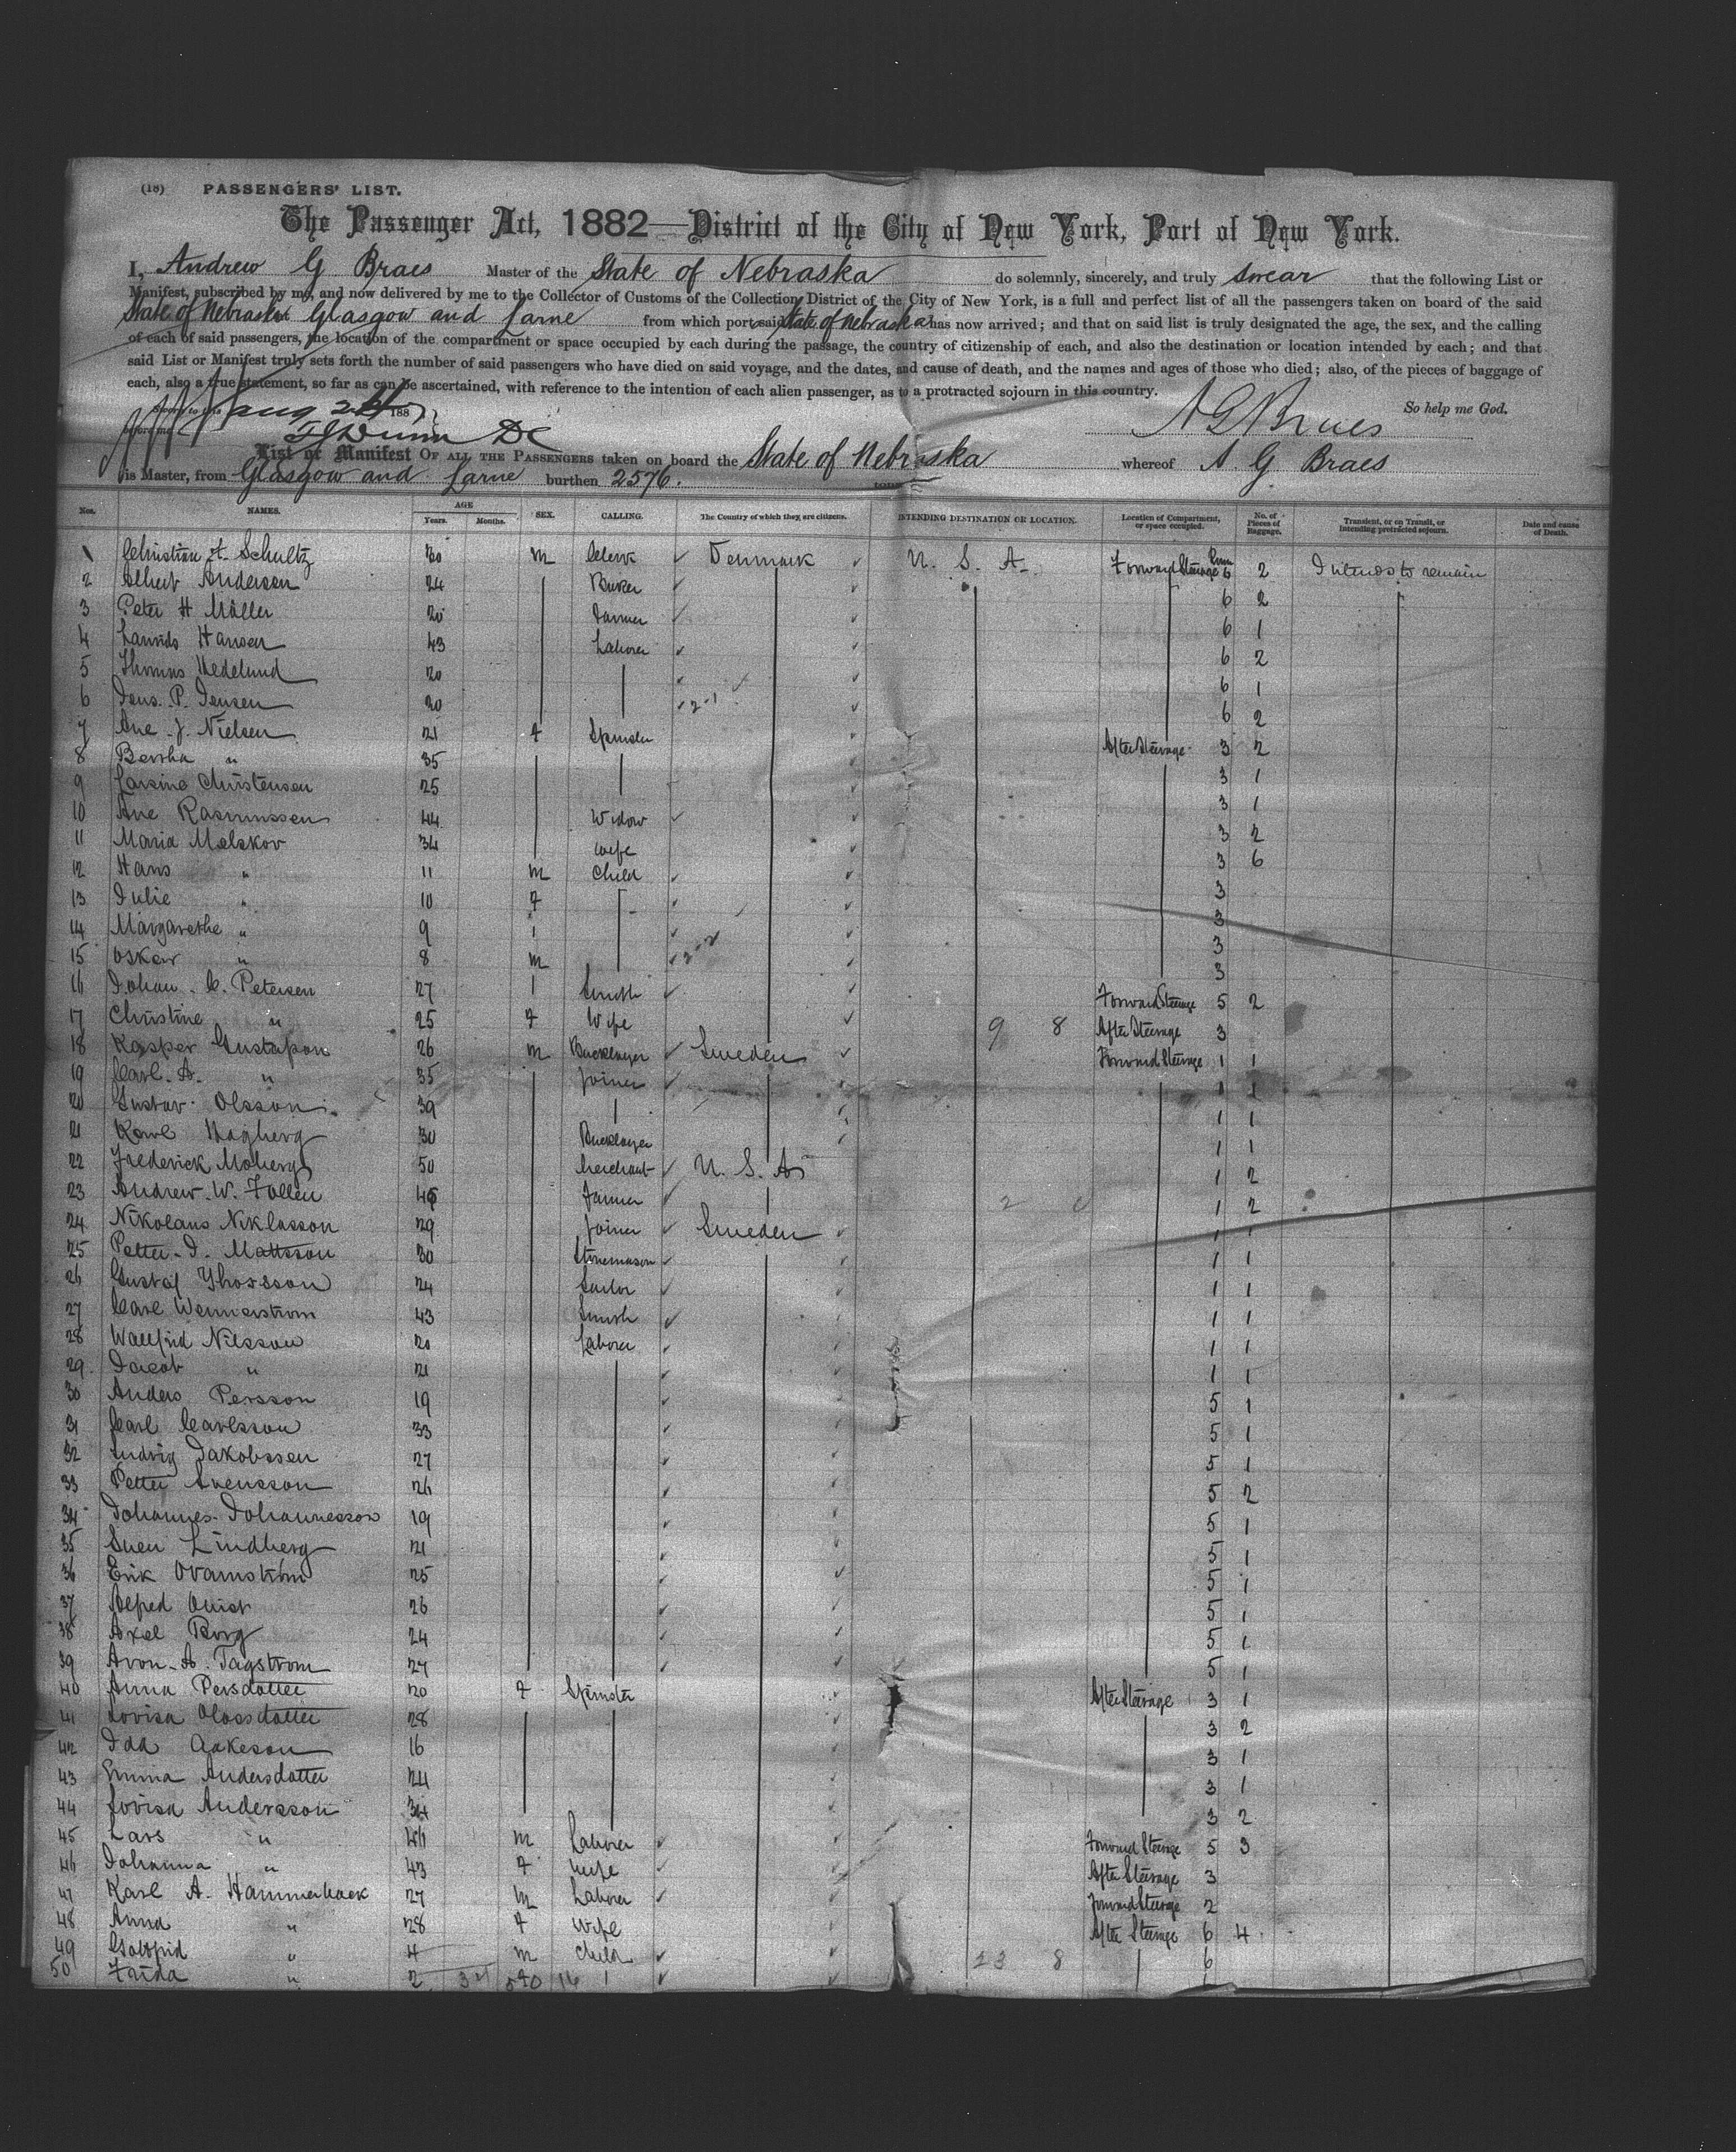 (18) PASSENGERS' LIST.
The Passenger Act, 1882—District of the City of New York, Port of New York.
I, Andrew G Braes Master of the State of Nebraska do solemnly, sincerely, and truly swear that the following List or
Manifest, subscribed by me, and now delivered by me to the Collector of Customs of the Collection District of the City of New York, is a full and perfect list of all the passengers taken on board of the said
State of Nebraska Glasgow and Larne from which port said State of Nebraska has now arrived; and that on said list is truly designated the age, the sex, and the calling
of each of said passengers, the location of the compartment or space occupied by each during the passage, the country of citizenship of each, and also the destination or location intended by each; and that
said List or Manifest truly sets forth the number of said passengers who have died on said voyage, and the dates, and cause of death, and the names and ages of those who died; also, of the pieces of baggage of
each, also a true statement, so far as can be ascertained, with reference to the intention of each alien passenger, as to a protracted sojourn in this country.
So help me God.
Aug 188
before me A G Braes
List or Manifest OF ALL THE PASSENGERS taken on board the State of Nebraska whereof A. G. Braes
is Master, from Glasgow and Larne burthen 2576. tons
Nos. NAMES. AGE Years. Months. SEX. CALLING. The Country of which they are citizens. INTENDING DESTINATION OR LOCATION. Location of Compartment, or space occupied. No. of Pieces of Baggage. Transient, or on Transit, or intending protracted sojourn. Date and cause of Death.
1 Christian A. Schultz 20 m Clerk Denmark U. S. A. Forward Steerage 6 2 Intends to remain
2 Albert Andersen 24 Baker 6 2
3 Peter H Möller 20 Farmer 6 1
4 Laurids Hansen 43 Laborer 6 2
5 Thomas Hedelund 20 6 1
6 Jens. P. Jensen 20 6 2
7 Ane. J. Nielsen 21 f Spinster After Steerage 3 2
8 Bertha " 35 3 1
9 Larsine Christensen 25 3 1
10 Ane Rasmussen 44 Widow 3 2
11 Maria Melskov 34 Wife 3 6
12 Hans " 11 m Child 3
13 Julie " 10 f 3
14 Margarethe " 9 3
15 Oskar " 8 m 3
16 Johan. C. Petersen 27 Smith Forward Steerage 5 2
17 Christine " 25 f Wife 9 8 After Steerage 3
18 Kasper Gustafson 26 m Bricklayer Sweden Forward Steerage 1 1
19 Carl. A. " 35 Joiner 1 1
20 Gustav Olsson 39 1 1
21 Karl Hagberg 30 Bricklayer 1 1
22 Frederick Moberg 50 Merchant U. S. A. 1 2
23 Andrew. W. Follen 45 Farmer 1 2
24 Nikolaus Niklasson 29 Joiner Sweden 1 1
25 Petter. J. Mattsson 30 Stonemason 1 1
26 Gustaf Thorsson 24 Sailor 1 1
27 Carl Wennerstrom 43 Smith 1 1
28 Wallfrid Nilsson 20 Laborer 1 1
29 Jacob " 21 1 1
30 Anders Persson 19 5 1
31 Carl Carlsson 33 5 1
32 Ludvig Jakobssen 27 5 1
33 Petter Svensson 26 5 2
34 Johannes Johannesson 19 5 1
35 Sven Lindberg 21 5 1
36 Erik 25 5 1
37 Alfred Quist 26 5 1
38 Axel Borg 24 5 1
39 Aron. A. Tagstrom 27 5 1
40 Anna Persdotter 20 f Spinster After Steerage 3 1
41 Lovisa Olossdotter 28 3 2
42 Ida Aakeson 16 3 1
43 Emma Andersdotter 24 3 1
44 Lovisa Andersson 34 3 2
45 Lars " 46 m Laborer Forward Steerage 5 3
46 Johanna " 43 f Wife After Steerage 3
47 Karl A. Hammerback 27 m Laborer Forward Steerage 2
48 Anna " 28 f Wife After Steerage 6 4
49 Gottfrid " 4 m Child 23 8 6
50 Frida " 2